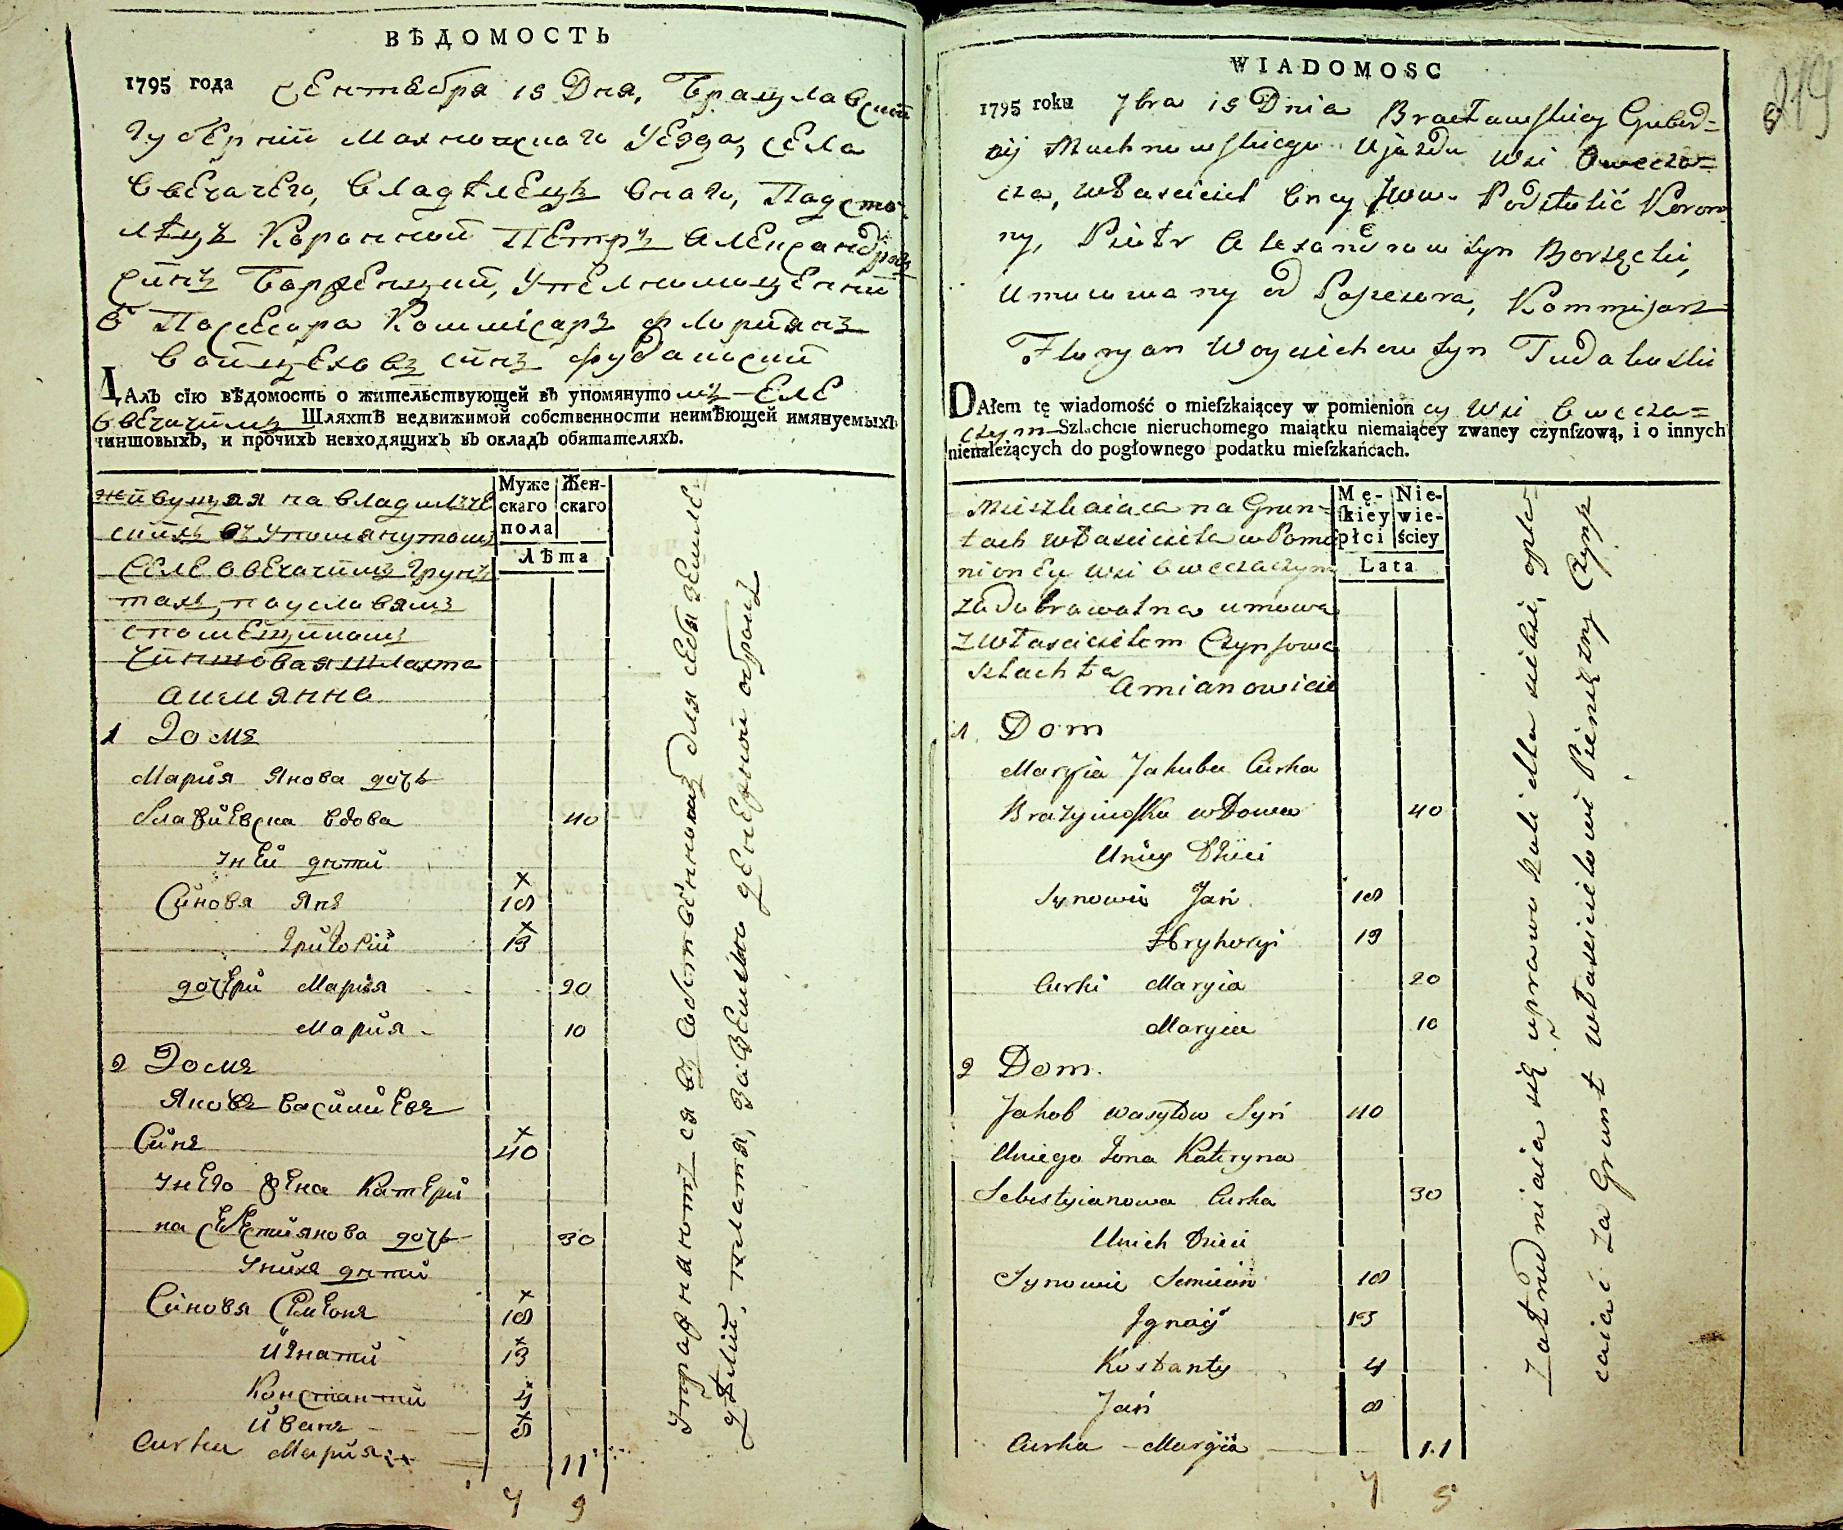 ВѢДОМОСТЬ
1795 года Сентебра 15 Дня, Брацлавской
Губернии Махновскаго Уезда, села
Овечачего, владѣлецъ Онаго, Подсто-
лѣцъ Коронной Петръ Александровъ
синъ Борженцкий, Упелномоценний
Ѿ Посесора Коммисаръ Флориянъ
Войцеховъ синъ
ДАлъ сїю вѣдомость о жительствующей въ упомянутомъ селе
Овечачимъ Шляхтѣ недвижимой собственности неимѣющей имянуемыхъ
чиншовыхъ, и прочихъ невходящихъ въ окладъ обитателяхъ.
Муже Жен-
скаго скаго
пола
Лѣта
живущая на владѣлче
скихъ въ упомянутомъ
селе Овечачимъ грун
тахъ, по условиямъ
с помещикомъ
Чиншовая шляхта
1 Домъ
Мария Якова дочь
вдова 40
У ней дѣти
Синовя Янъ 18
Григорий 13
дочери Мария 20
Мария 10
2 Домъ
Яковъ Василиевъ
Синъ 40
У него жена Катери
на Себестиянова дочь 30
У нихъ дѣти
Синовя Семионъ 18
Игнатий 13
Константий 4
Иванъ 8
Curka Мария 11
7 5
Упражняютъ ся въ собственномъ для себя земле
дѣлий, платя, за землю денежний оброкъ
WIADOMOSC
219
1795 roku 7bra 15 Dnia Bracławskiey Guber=
nij Machnowskiego Ujazdu Wsi Owecza=
cza, własciciel Oney Podstolic Koron
ny, Piotr Alexandrow syn Borzęcki,
Umocowany od Posesora, Kommisarz
Floryan Woyciechow syn
DAłem tę wiadomość o mieſzkaiącey w pomienioney Wsi Owecza=
czym Szlachcie nieruchomego maiątku niemaiącey zwaney czynſzową, i o innych
nienależących do pogłownego podatku mieſzkańcach.
Mę- Nie-
ſkiey wie-
płci ściey
Lata
Mieszkaiąca na Grun=
tach własciciela w Pomie
nioney wsi Oweczaczym
za dobrowolną umową
z włascicielem Czynszowa
szlachta
Amianowicie
1 Dom
Maryia Jakuba Curka
wdowa 40
U niey Dzieci
Synowie Jan 18
Hryhoryi 13
Curki Maryia 20
Maryia 10
2 Dom.
Jakob wasylow Syn 40
U niego żona Kateryna
Sebestyianowa Curka 30
U nich Dzieci
Synowie Semion 18
Ignacy 13
Kostanty 4
Jan 8
Curka Maryia 11
7 5
Zatrudniaią się uprawą Roli dla siebie, opła=
caiąc za Grunt własicielowi Pieniężny Czynsz